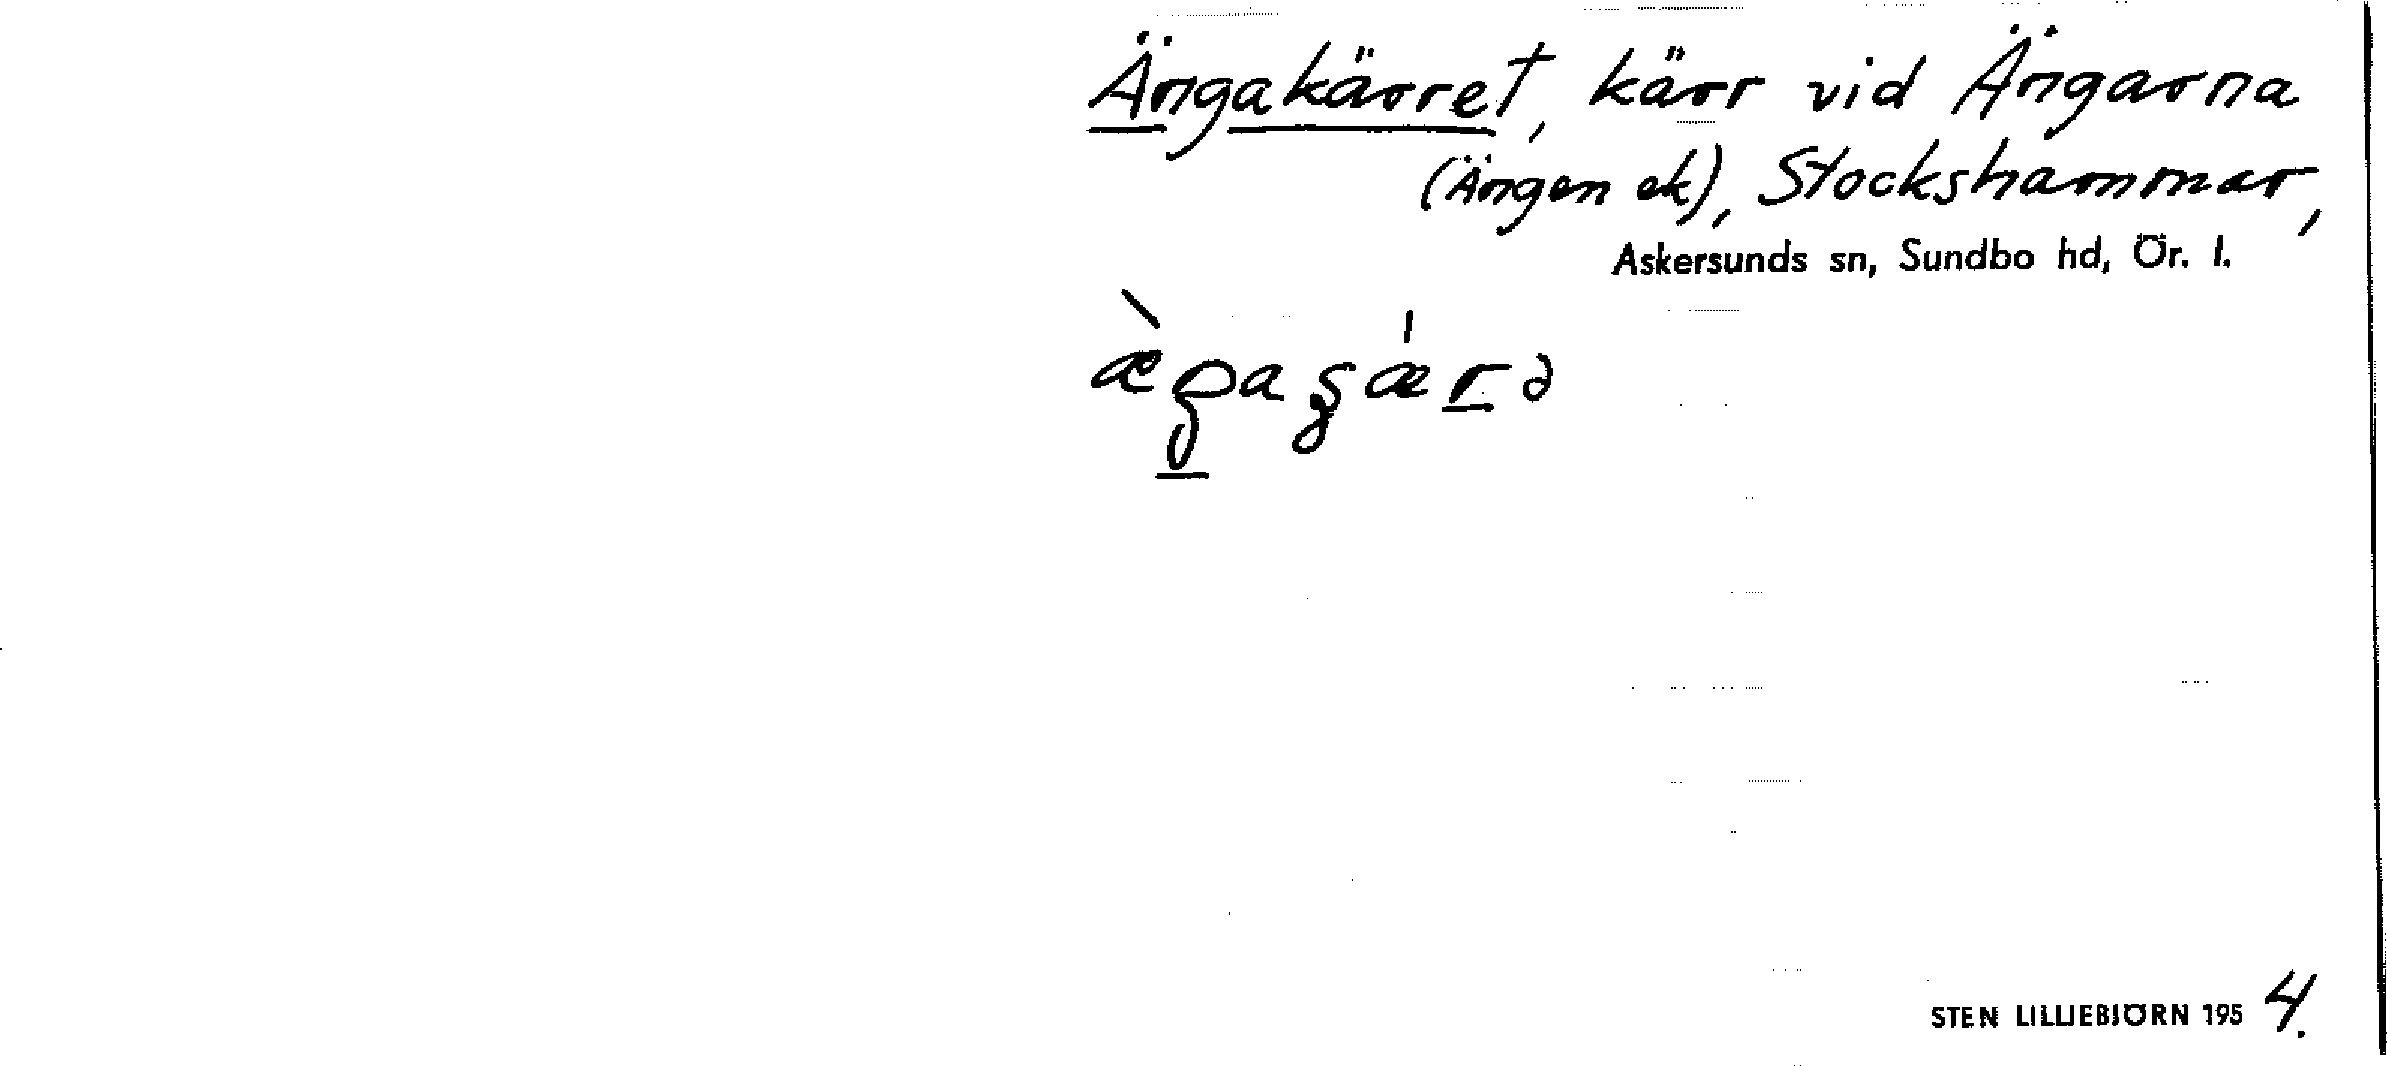 Ängakärret, kärr vid Ängarna
(Ängen ek), Stockshammar,
Askersunds sn, Sundbo hd, Ör. l.
STEN LILLIEBJÖRN 1954.